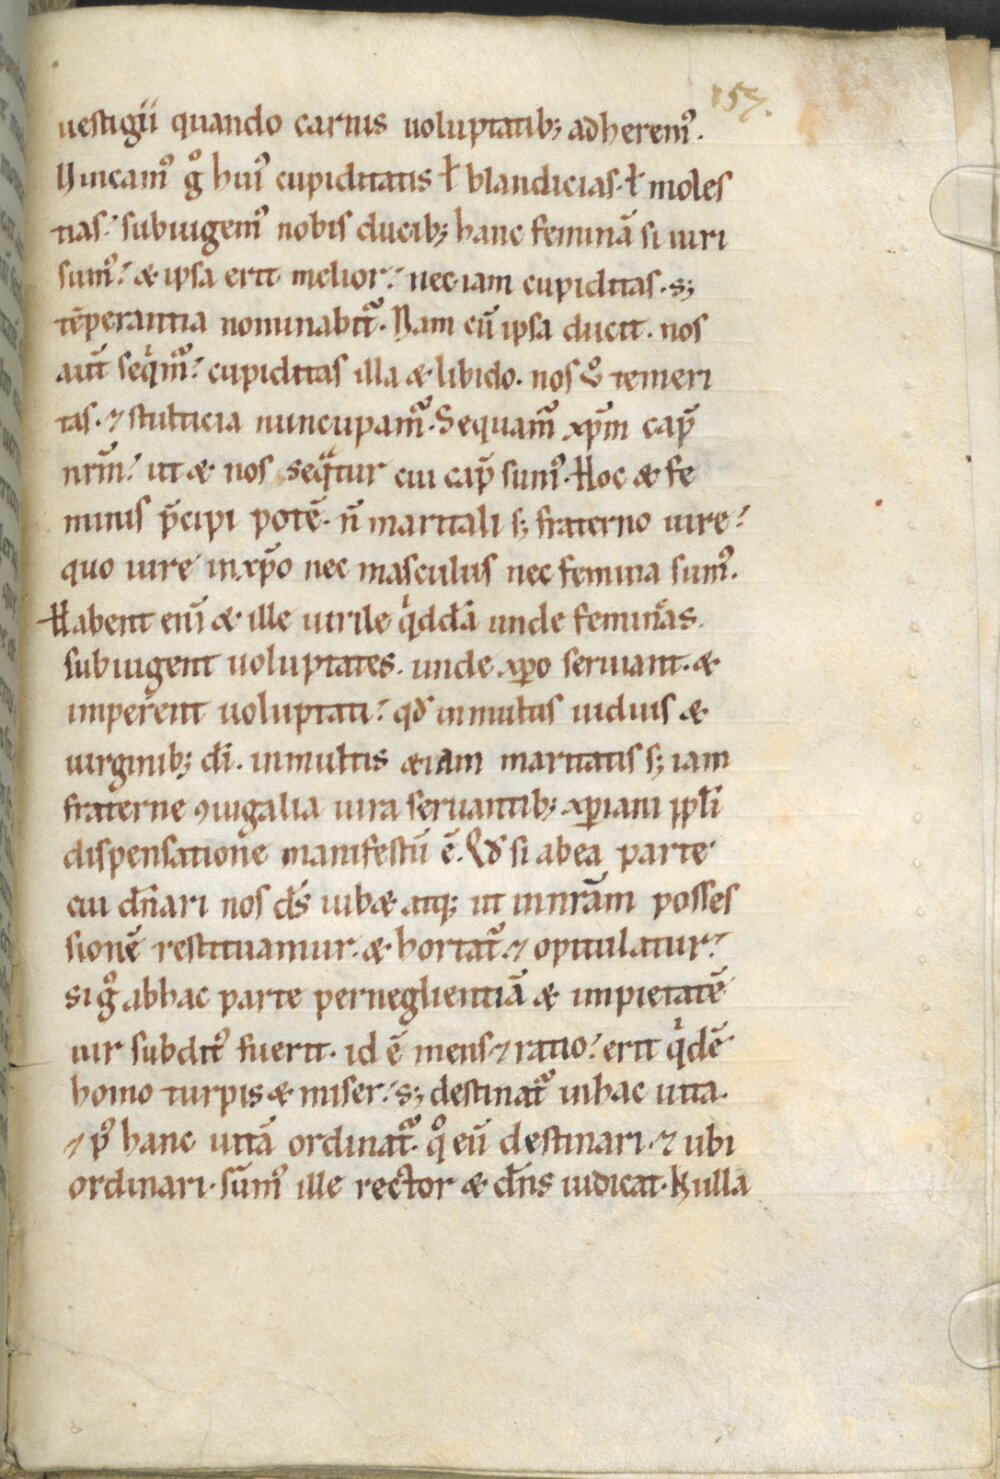 157.
uestigii quando carnis uoluptatib; adherem᷒.
Vincam᷒ g̊ hui᷒ cupiditatis ł blandicias. ł moles
tias. subiugem᷒ nobis ducib; hanc feminā si uiri
sum᷒. & ipsa erit melior. nec iam cupiditas. s;
tēperantia nominabit᷑. Nam cū ipsa ducit. nos
aut̄ seqͥm᷑. cupiditas illa & libido. nos ů temeri
tas. ⁊ stulticia nuncupam᷑. Sequam᷑ xp̄m cap̄
nr̄m. ut & nos seqͣtur cui cap̄ sum᷒. Hoc & fe
minis p̄cipi potē. n̄ maritali s; fraterno iure.
quo iure inxp̄o nec masculus nec femina sum᷒.
Habent eni̅ & ille uirile qͥddā unde femineas
subiugent uoluptates. unde xp̄o seruiant. &
imperent uoluptati. qd̄ inmultis uiduis &
uirginib; dī. inmultis &iam maritatis s; iam
fraterne ꝯiugalia iura seruantib; xp̄iani pp̄li
dispensatione manifestū ē. Qd̄ si abea parte
cui dn̄ari nos ds̄ iub& atq; ut innr̄am posses
sionē restituamur. & hortat᷑. ⁊ opitulatur.
si g̊ abhac parte perneglientiā & impietatē
uir subdit᷒ fuerit. id ē mens ⁊ ratio. erit qͥdē
homo turpis & miser. s; destinat᷑ inhac uita.
⁊ p᷒ hanc uitā ordinat᷑. q̊ eū destinari. ⁊ ubi
ordinari. sūm᷒ ille rector & dn̄s iudicat. Nulla